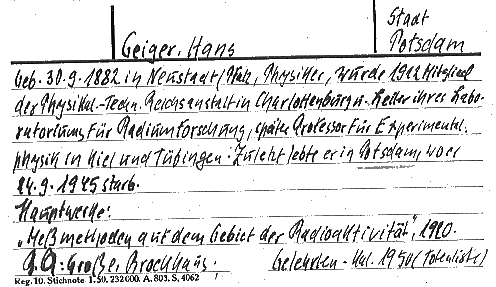 Stadt
Geiger, Hans Potsdam
Geb. 30.9.1882 in Neustadt/Pfalz, Physiker, wurde 1912 Mitglied
der Physikal.-Techn. Reichsanstalt in Charlottenburg u. Leiter ihres Labo-
ratoriums für Radiumforschung, später Professor für Experimental-
physik in Kiel und Tübingen. Zuletzt lebte er in Potsdam, wo er
24.9.1945 starb.
Hauptwerke:
„Meßmethoden auf dem Gebiet der Radioaktivität", 1920.
Große, Brockhaus; Gelehrten-Kal. 1950 (Totenliste)
Reg. 10. Stichnote 1. 50. 232000. A. 803. S. 4062